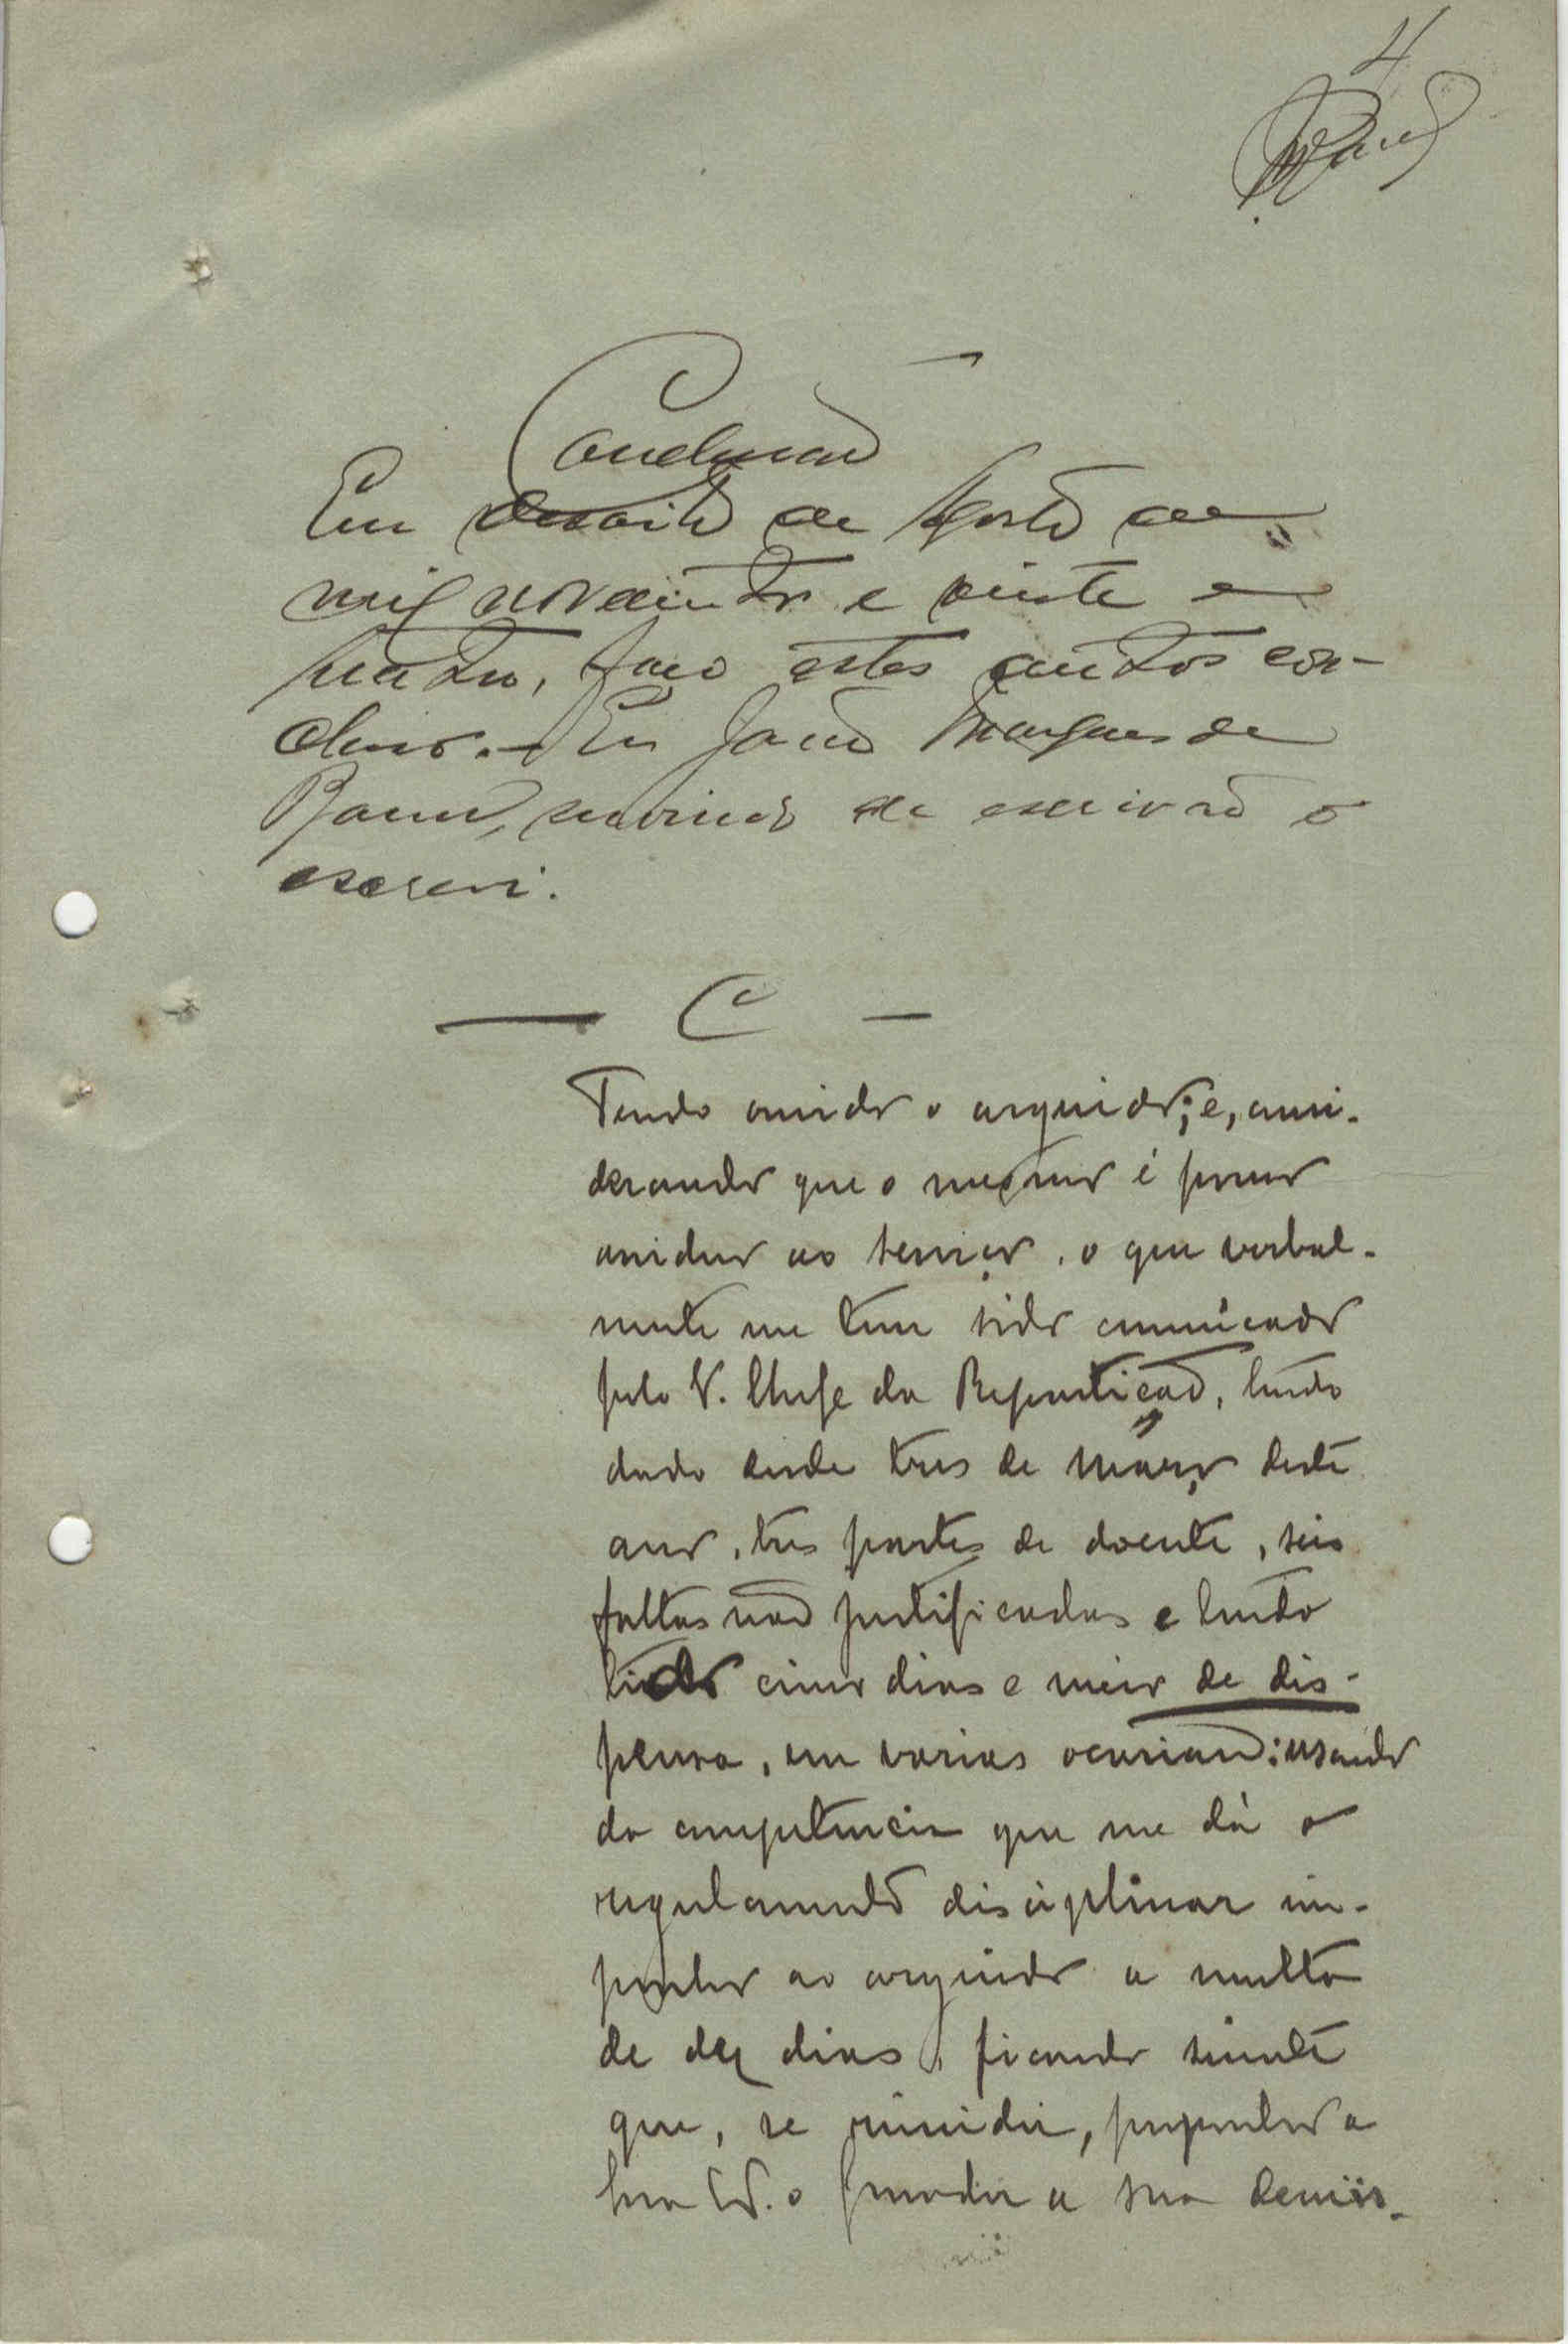 4
Conclusão
Em desoito de Agosto de
mil novecentos e vinte e
quatro, faço estes autos con-
clusos. Eu Jaime Marques de
servindo de escrivão o
escrevi.
C
Tendo ouvido o arguido; e, consi-
derando que o mesmo é pouco
assiduo ao serviço, o que verbal-
mente me tem sido comunicado
pelo V. Chefe da Repartição, tendo
dado desde tres de Março deste
ano, tres partes de doente, seis
faltas não justificadas e tendo
tido cinco dias e meio de dis-
pensa, em varias ocasiões: usando
da competencia que me dá o
regulamento disciplinar im-
ponho ao arguido a multa
de dez dias, ficando sciente
que, se reincidir, proponho a
Sua Ex.ª o a sua demis-